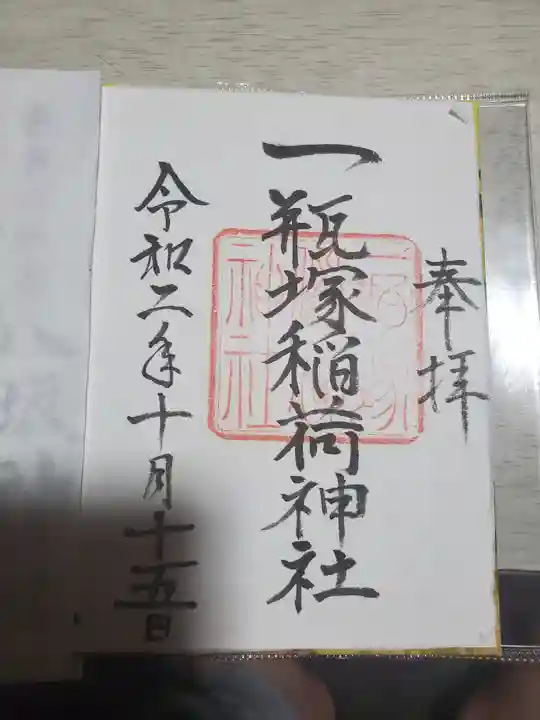 奉拝
一瓶塚稲荷神社
令和二年十月十五日